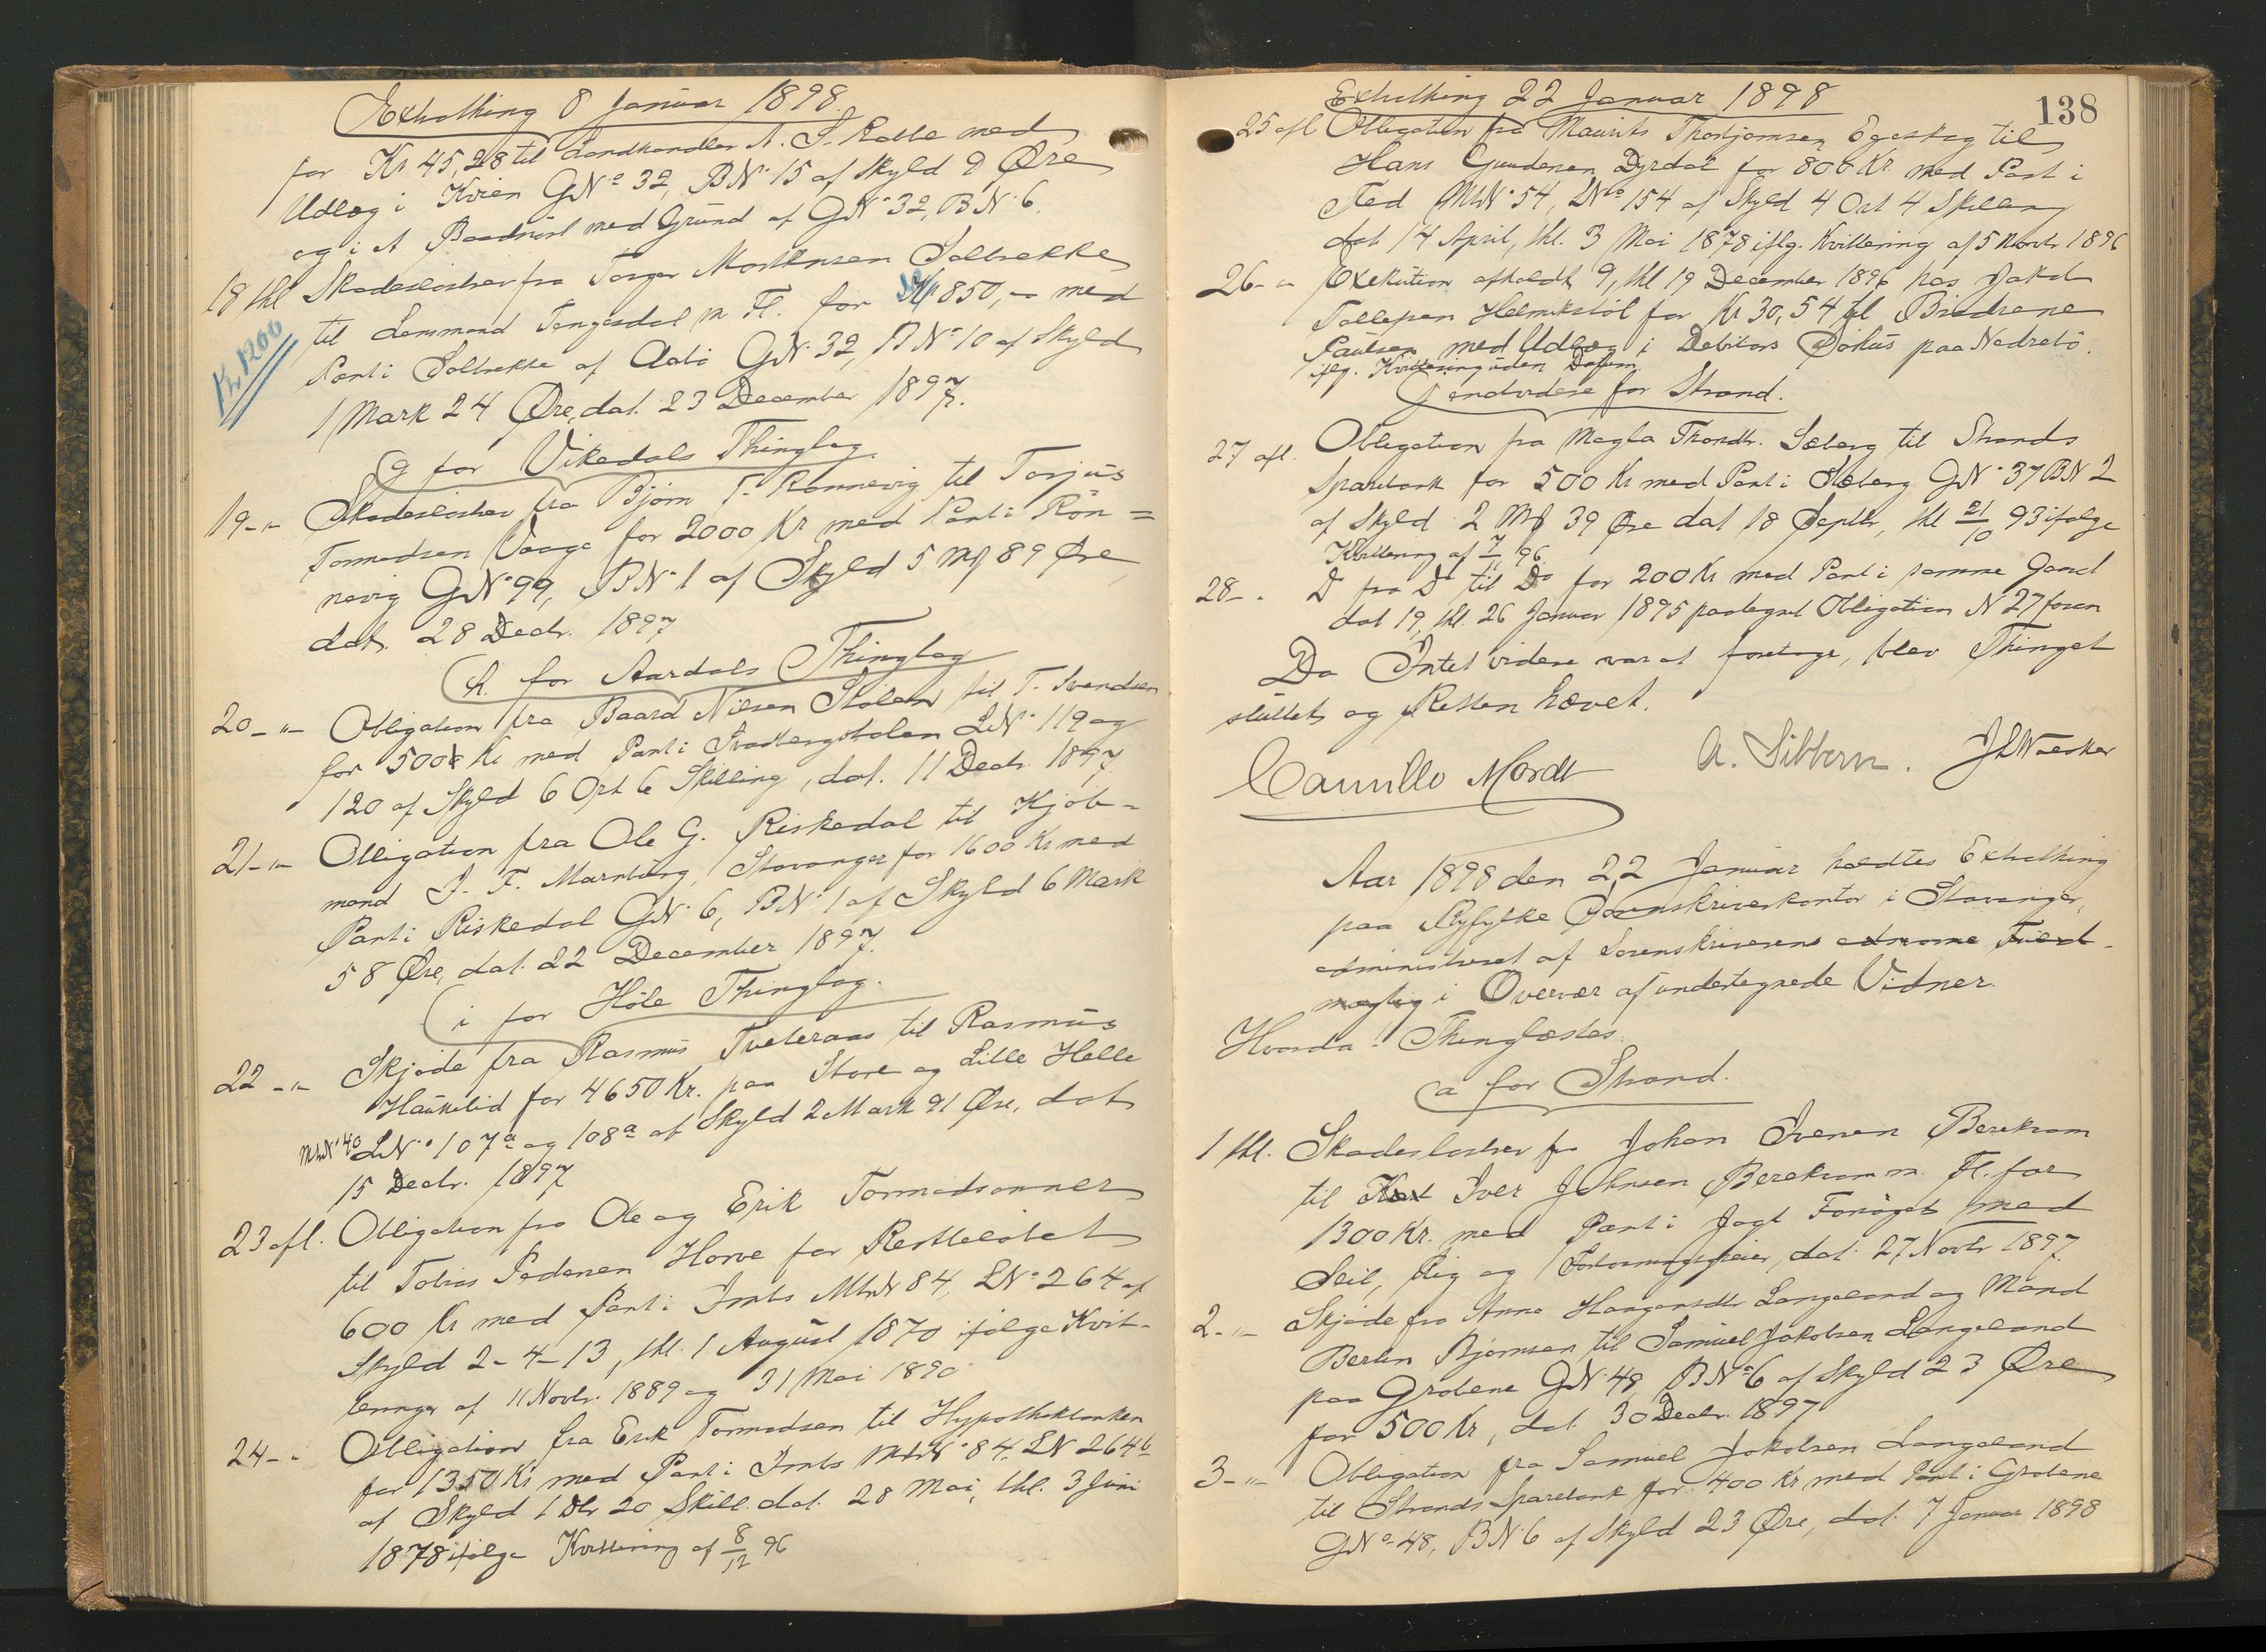 Extrathing 8 Januar 1898.
for Kr 45,28 til Landhandler A. S. Rabbe med
Udlæg i Kvien GNo 32, BN. 15 af Skyld 9 Øre
og i et Baadnøst med Grund af GN. 32, BN. 6.
18 thl Skadesløsbrev fra Torger Mortensen Solbrekke
til Lensmand Tengesdal m Fl. for Kr 850,- med
Kr 1200
Pant i Solbrekke af Aabø GN. 32, BNo 10 af Skyld
1 Mark 24 Øre, dat. 23 December 1897.
g for Vikedals Thinglag.
19 - " - Skadesløsbrev fra Bjørn T. Rønnevig til Torjus
Tormodsen Vaage for 2000 Kr med Pant i Røn=
nevig GNo 99, BN. 1 af Skyld 5 Mk 89 Øre,
dat. 28 Decbr. 1897
h. for Aardals Thinglag
20 - " - Obligation fra Baard Nilsen Stølen til T. Svendsen
for 500 Kr med Pant i Svadbergstølen LN. 119 og
120 af Skyld 6 Ort 6 Skilling, dat. 11 Decbr. 1897.
21 - " - Obligation fra Ole G. Riskedal til Kjøb-
mand J. F. Marnburg, Stavanger for 1600 Kr med
Pant i Riskedal GN. 6, BN. 1 af Skyld 6 Mark
58 Øre, dat. 22 December 1897.
i for Høle Thinglag.
22 - " - Skjøde fra Rasmus Tveteraas til Rasmus
Haukelid for 4650 Kr. paa Store og Lille Helle
MtrN. 40 LN. 107a og 108a af Skyld 2 Mark 91 Øre, dat
15 Decbr. 1897
23 afl. Obligation fra Ole og Erik Tormodsønner
til Tobias Pedersen Horve for Restbeløbet
600 Kr med Pant i Imts MtrN 84, LNo 264 af
Skyld 2-4-13, thl. 1 August 1870 ifølge Kvit-
teringer af 11 Novbr. 1889 og 31 Mai 1890
24 - " Obligation fra Erik Tormodsen til Hypothekbanken
for 1350 Kr med Pant i Imts MtrNo 84, LN 264b
af Skyld 1 Dlr 20 Skill. dat. 28 Mai, thl. 3 Juni
1878 ifølge Kvittering af 8/12 96
Extrathing 22 Januar 1898
138
25 afl Obligation fra Maurits Thorbjørnsen Egeskog til
Hans Gundersen Dyrdal for 800 Kr. med Pant i
Fed MtrN. 54, LNo 154 af Skyld 4 Ort 4 Skilling
dat 14 April, thl. 3 Mai 1878 iflg. Kvittering af 5 Novbr 1896
26 - " Exekution afholdt 9, thl 19 December 1896 hos Jakob
Tollefsen Helmikstøl for Kr 30,54 til Brødrene
Paulsen med Udlæg i Debitors Søhus paa Nedrebø.
iflg. Kvittering uden Datum.
J endvidere for Strand.
27 afl. Obligation fra Magla Thordtr. Søberg til Strands
Sparebank for 500 Kr med Pant i Søberg GN. 37 BN 2
af Skyld 2 Mk 39 Øre dat 18 Septbr, thl 21/10 93 ifølge
Kvittering af 7/1 96
28 - " Do fra Do til Do for 200 Kr med Pant i samme Gaard
dat 19, thl. 26 Januar 1895 paategnet Obligation N 27 foran
Da Intet videre var at foretage, blev Thinget
sluttet og Retten hævet.
Camillo Mordt A. Sibbern. J L Waesker
Aar 1898 den 22 Januar holdtes Extrathing
paa Ryfylke Sorenskriverkontor i Stavanger,
administreret af Sorenskriverens edsvorne Fuld-
mægtig i Overvær af undertegnede Vidner.
Hvorda: Thinglæstes.
a for Strand.
1 thl. Skadesløsbrev fra Johan Iversen Berekvam
til Iver Johnsen Berekvam m. Fl. for
1300 Kr. med Pant i Jagt Forsøget med
Seil, Rig og , dat. 27 Novbr 1897.
2 - " - Skjøde fra Anna Haagensdtr Langeland og Mand
Berten Bjørnsen til Samuel Jakobsen Langeland
paa Grobene GN. 48, BNo 6 af Skyld 23 Øre
for 500 Kr, dat. 30 Decbr. 1897
3 - " - Obligation fra Samuel Jakobsen Langeland
til Strands Sparebank for 400 Kr med Pant i Grobene
GNo 48, BN. 6 af Skyld 23 Øre, dat. 7 Januar 1898